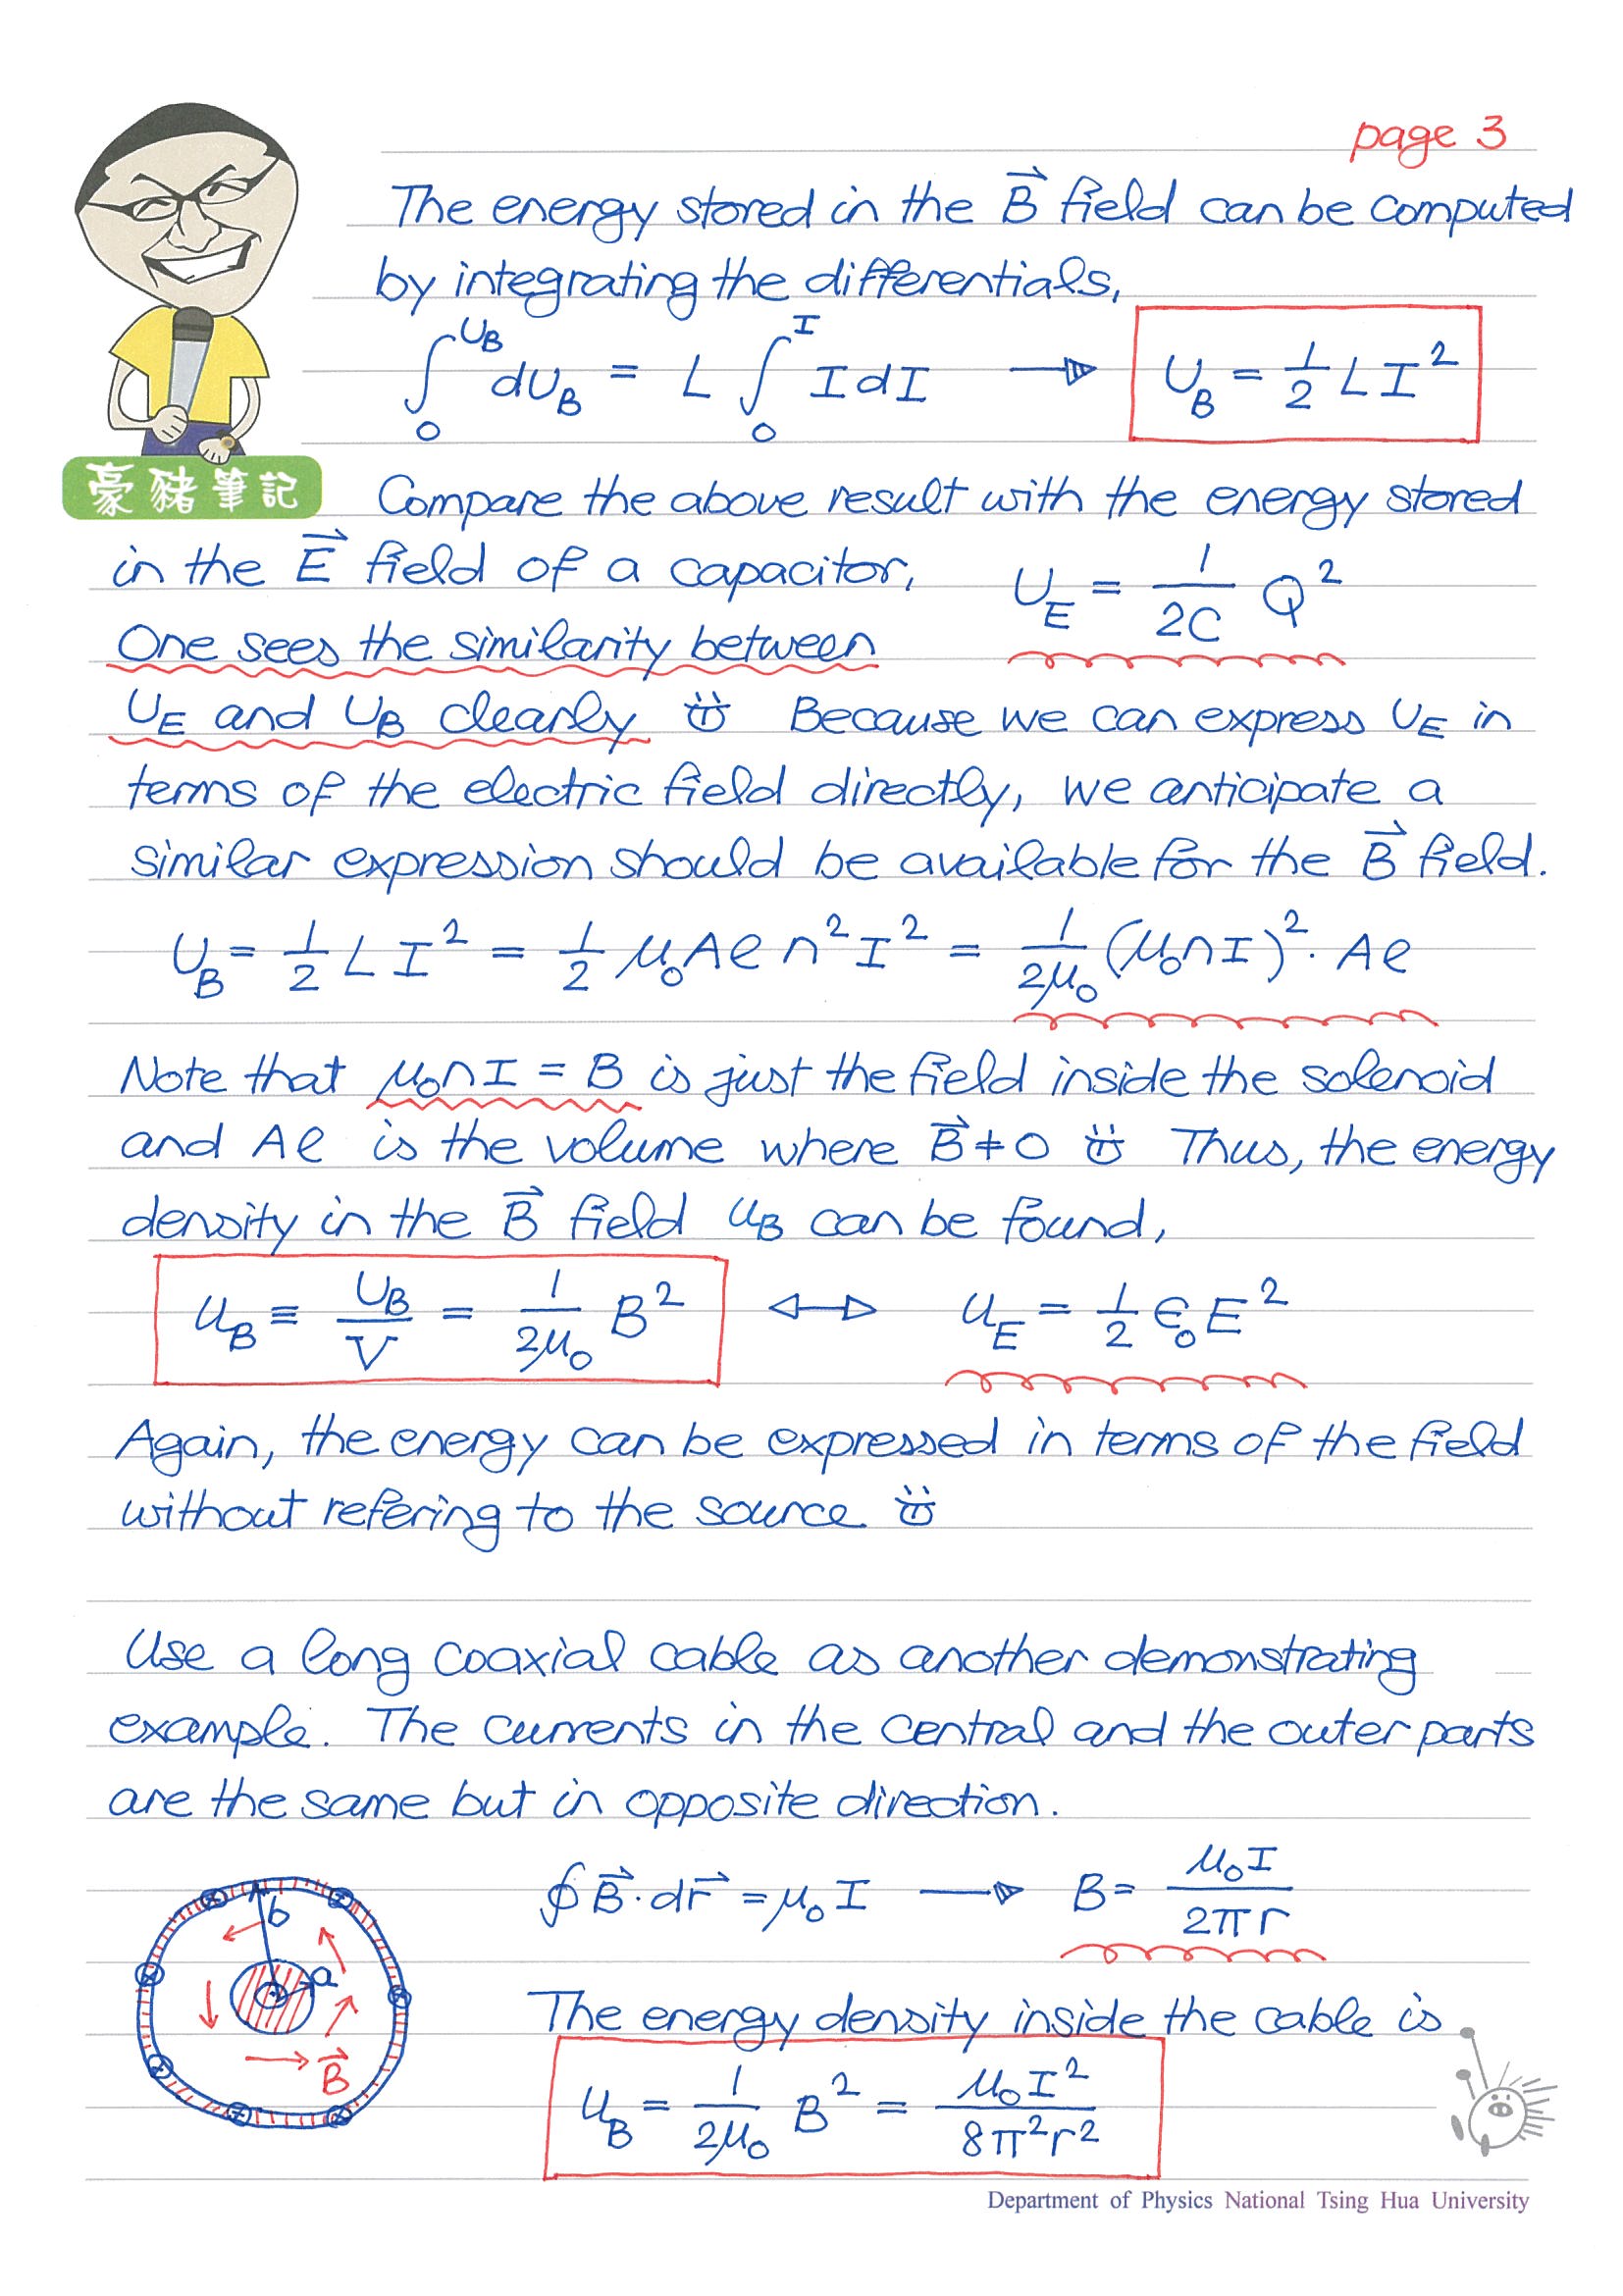 page 3
The energy stored in the B⃗ field can be computed
by integrating the differentials,
∫₀^{U_B} dU_B = L ∫₀^I I dI → U_B = 1/2 L I²
豪豬筆記
Compare the above result with the energy stored
in the E⃗ field of a capacitor, U_E = 1/(2C) Q²
One sees the similarity between
U_E and U_B clearly Because we can express U_E in
terms of the electric field directly, we anticipate a
similar expression should be available for the B⃗ field.
U_B = 1/2 L I² = 1/2 μ₀Aℓ n² I² = 1/(2μ₀) (μ₀nI)² · Aℓ
Note that μ₀nI = B is just the field inside the solenoid
and Aℓ is the volume where B⃗ ≠ 0 Thus, the energy
density in the B⃗ field u_B can be found,
u_B ≡ U_B/V = 1/(2μ₀) B² ↔ u_E = 1/2 ϵ₀E²
Again, the energy can be expressed in terms of the field
without refering to the source
Use a long coaxial cable as another demonstrating
example. The currents in the central and the outer parts
are the same but in opposite direction.
∮ B⃗ · dr⃗ = μ₀ I → B = μ₀I/(2πr)
b
a
B⃗
The energy density inside the cable is
u_B = 1/(2μ₀) B² = μ₀I²/(8π²r²)
Department of Physics National Tsing Hua University